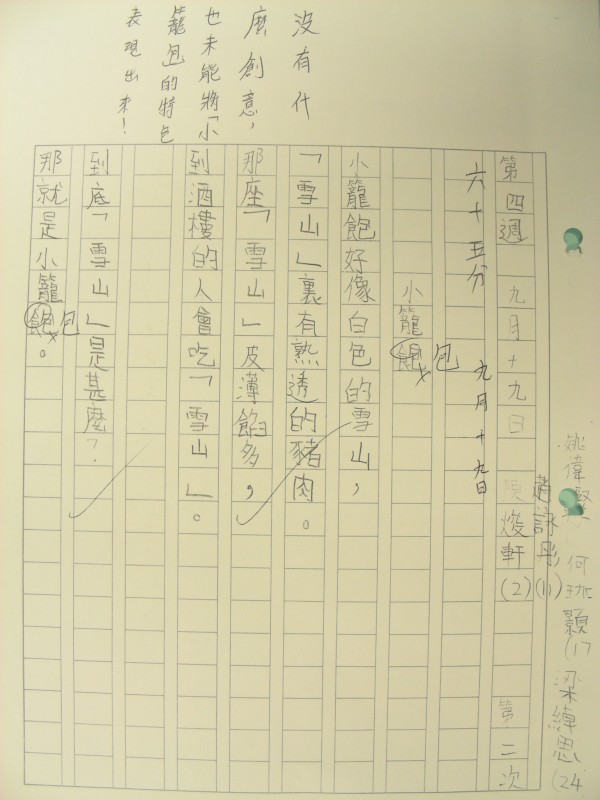 何珈顥(17
梁緯思(24)
趙詠彤(11)
第四週 九月十九日 陳焌軒(2) 第二次
六十五分 九月十九日
小籠飽 包
小籠飽好像白色的雪山,
「雪山」裏有熟透的豬肉。
那座「雪山」皮薄餡多,
到酒樓的人會吃「雪山」。
到底「雪山」是甚麼?
那就是小籠飽。 包
沒有什
麼創意,
也未能將「小
籠包的特色
表現出來!